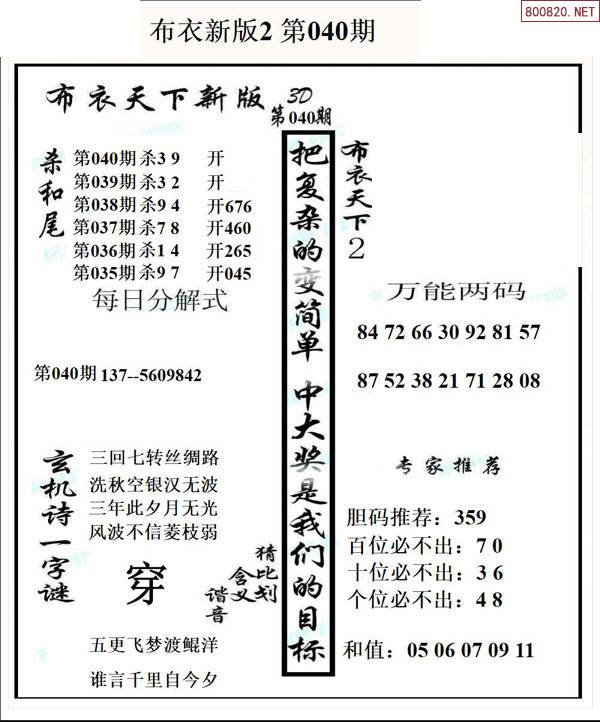 800820.NET
布衣新版2 第040期
布衣天下新版 3D
第040期
杀和尾
第040期杀3 9 开
第039期杀3 2 开
第038期杀9 4 开676
第037期杀7 8 开460
第036期杀1 4 开265
第035期杀9 7 开045
每日分解式
第040期 137--5609842
玄机诗一字谜
三回七转丝绸路
洗秋空银汉无波
三年此夕月无光
风波不信菱枝弱
穿
猜比划
含义
谐音
五更飞梦渡鲲洋
谁言千里自今夕
把复杂的变简单 中大奖是我们的目标
布衣天下2
万能两码
84 72 66 30 92 81 57
87 52 38 21 71 28 08
专家推荐
胆码推荐：359
百位必不出：7 0
十位必不出：3 6
个位必不出：4 8
和值：05 06 07 09 11